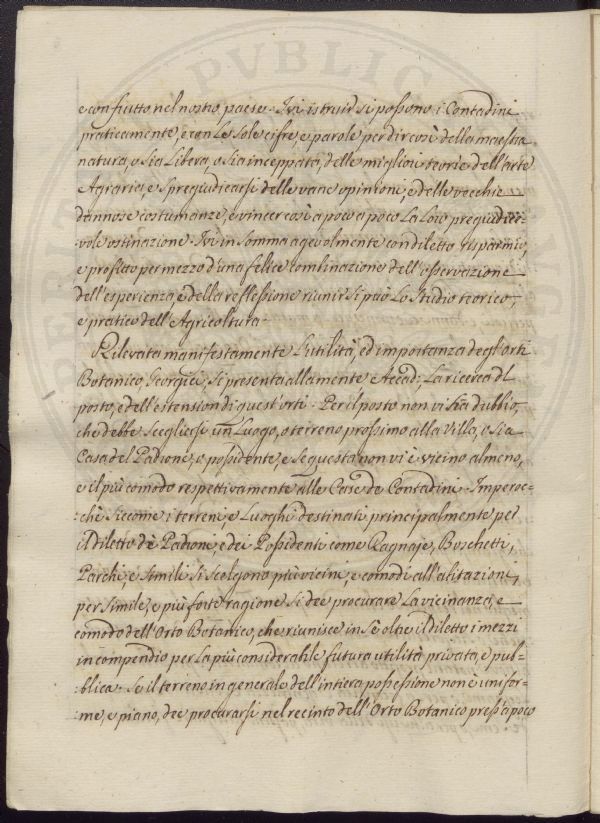 e con frutto nel nostro paese. Ivi istruir si possono i Contadini
praticamente, e con le sole cifre, e parole per dir così della maestra
natura, o sia libera, o sia inceppata, delle migliori teorie dell'arte
Agraria, e spregiudicarsi delle vane opinioni, e delle vecchie
dannose costumanze, e vincer così a poco a poco la loro pregiudize-
vole ostinazione. Ivi in somma agevolmente con diletto risparmio,
e profitto per mezzo d'una felice combinazione dell'osservazione
dell'esperienza, e della reflessione riunir si può lo studio teorico,
e pratico dell'Agricoltura.
Rilevata manifestamente l'utilità, ed importanza degl'orti
Botanico, Georgici, si presenta alla mente Accad: la ricerca del
posto, e dell'estension di quest'orti. Per il posto non vi sia dubbio,
che debbe scegliersi un luogo, o terreno prossimo alla Villa, o sia
Casa del Padrone, o possidente, e se questa non vi è vicino almeno,
e il più comodo respettivamente alle Case de Contadini. Imperoc-
:chè siccome i terreni, e luoghi destinati principalmente per
il diletto de Padroni e dei Possidenti come Ragnaje, Boschetti,
Parchi, e simili si scelgono più vicini, e comodi all'abitazioni,
per simile, e più forte ragione si dee procurare la vicinanza, e
comodo dell'Orto Botanico, che riunisce in sè oltre il diletto i mezzi
in compendio per la più considerabile futura utilità privata, e pub-
:blica. Se il terreno in generale dell'intiera possessione non è unifor-
:me, e piano, dee procurarsi nel recinto dell'Orto Botanico press'a poco
PVBLIC